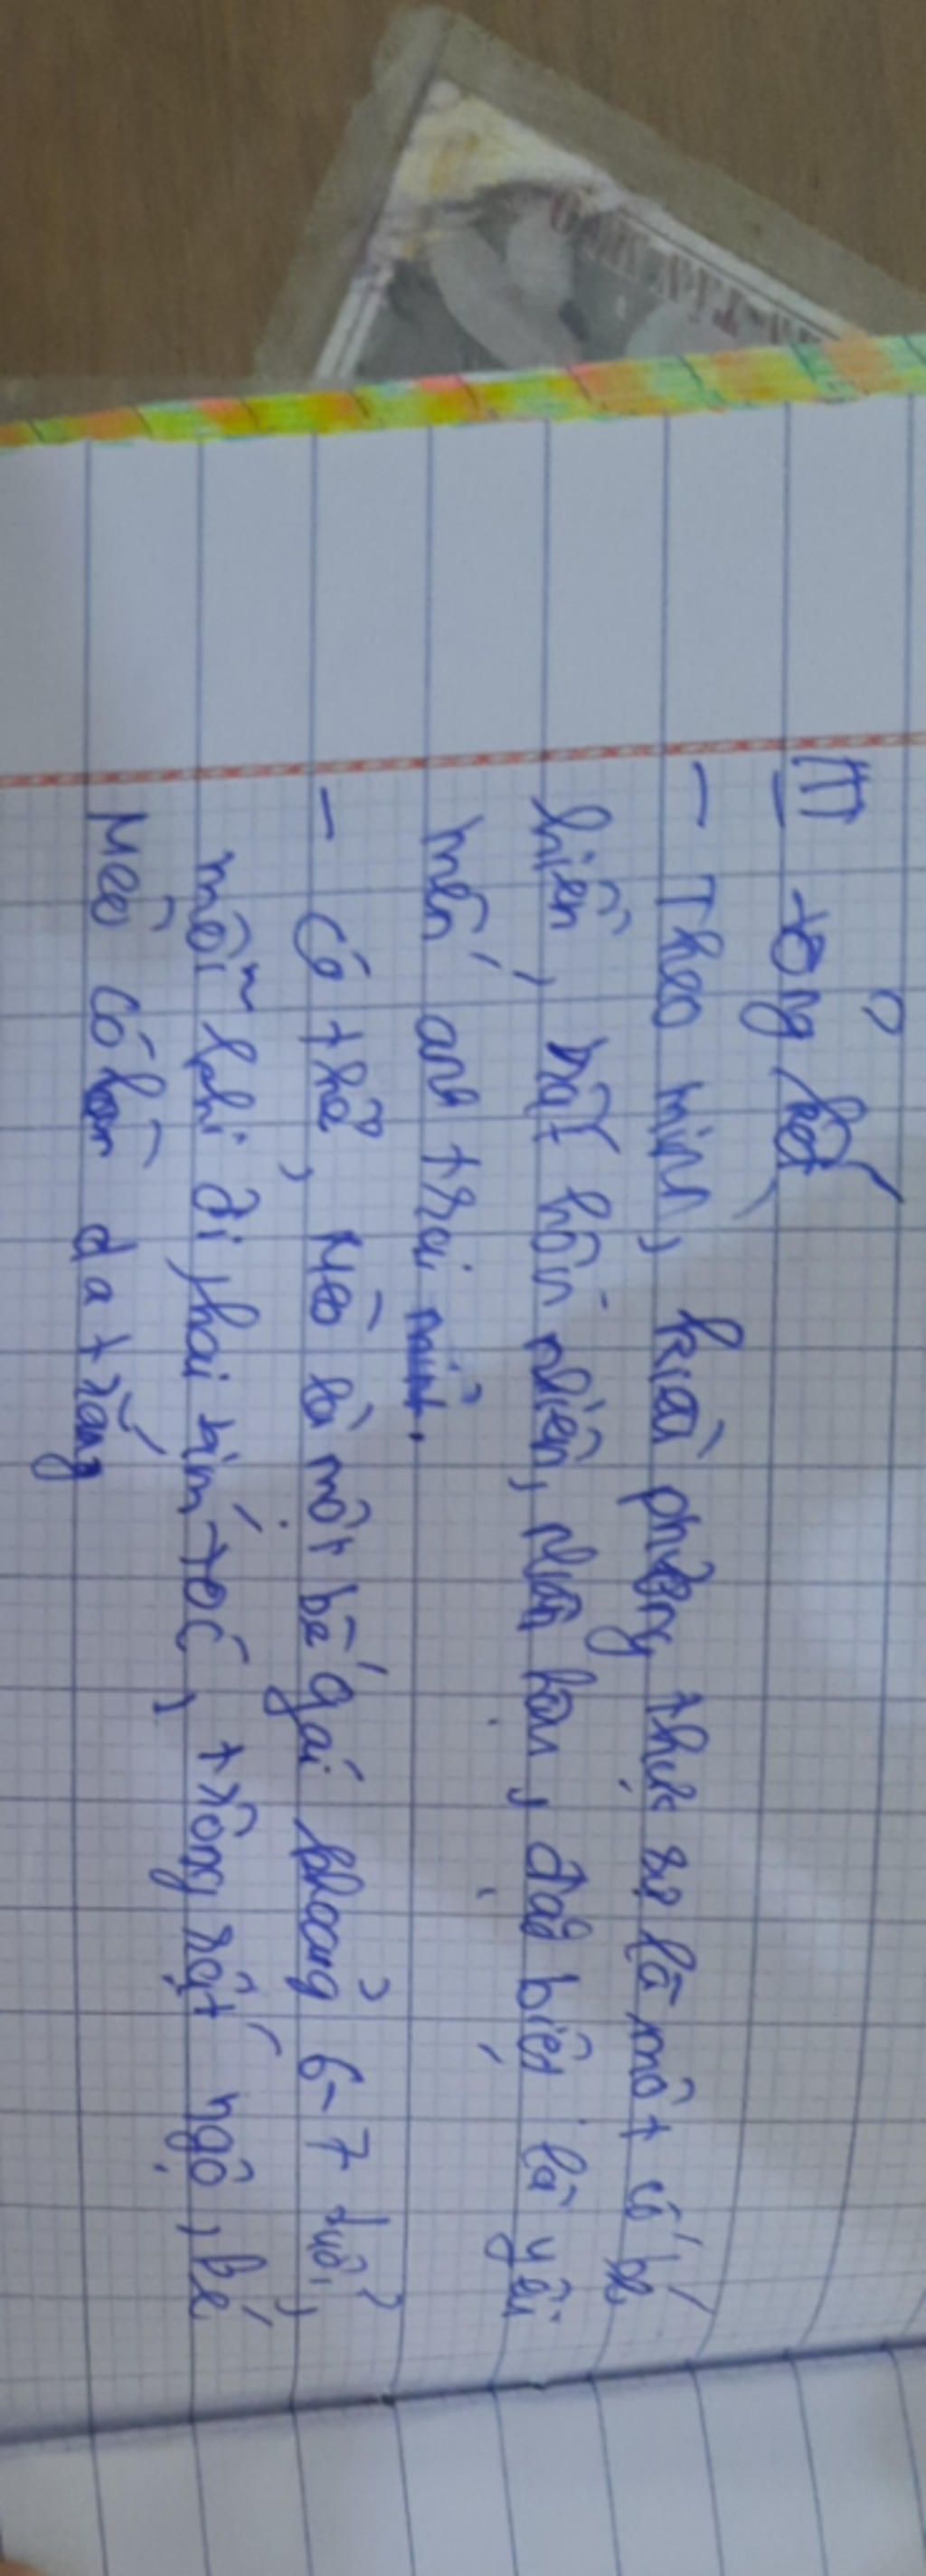 III tổng kết
- Theo mình, kiều phương thực sự là một cô bé
hiền, hồn nhiên, nhân hậu, đặc biệt là yêu
mến anh trai mình.
- Có thể, Mèo là một bé gái khoảng 6-7 tuổi,
mỗi khi đi phải bím tóc, trông rất ngộ, bé
Mèo có da trắng